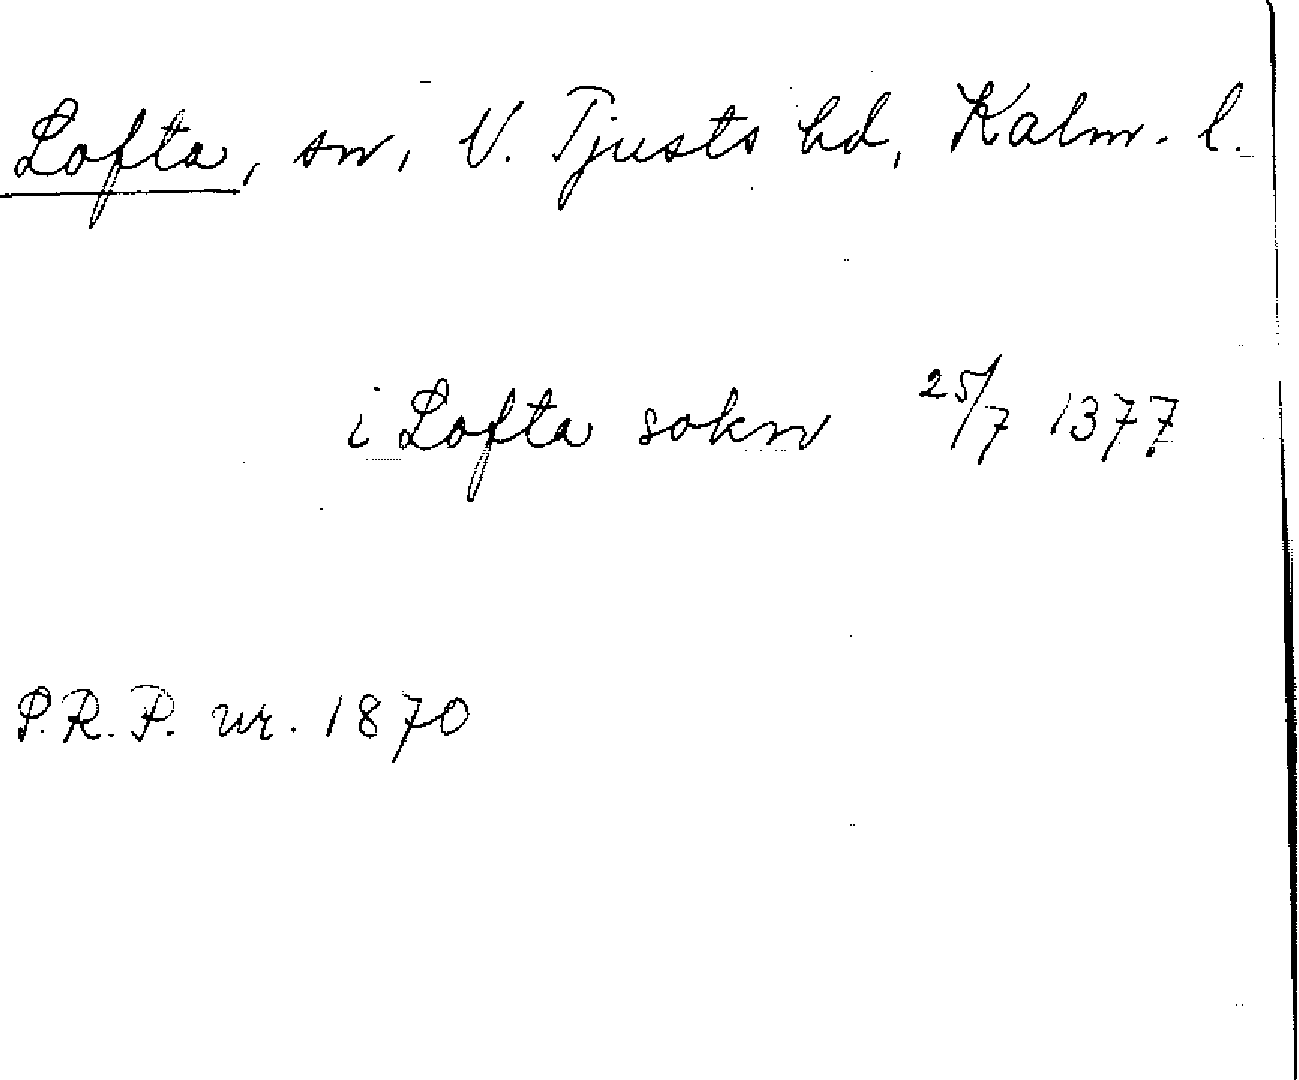 Lofta, sn, V. Tjusts hd, Kalm. l.
i Lofta sokn 25/7 1377
P.R.P. nr. 1870